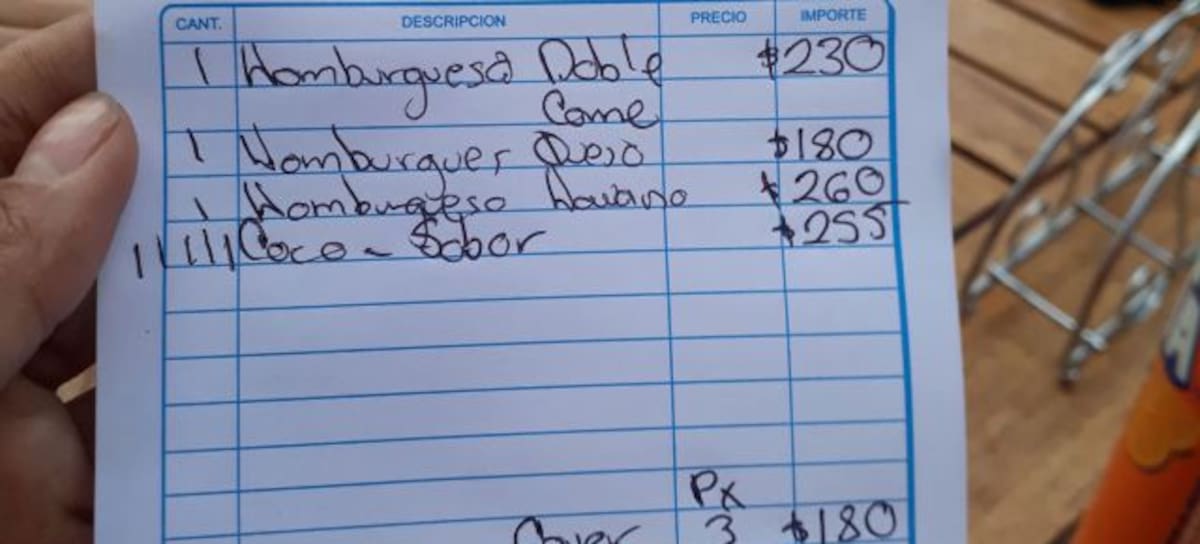 CANT. DESCRIPCION PRECIO IMPORTE
1 Hamburguesa Doble $230
Carne
1 Hamburgues Queso $180
1 Hamburguesa Hawano $260
111111 Coca - Sabor $255
Px
Cover 3 $180